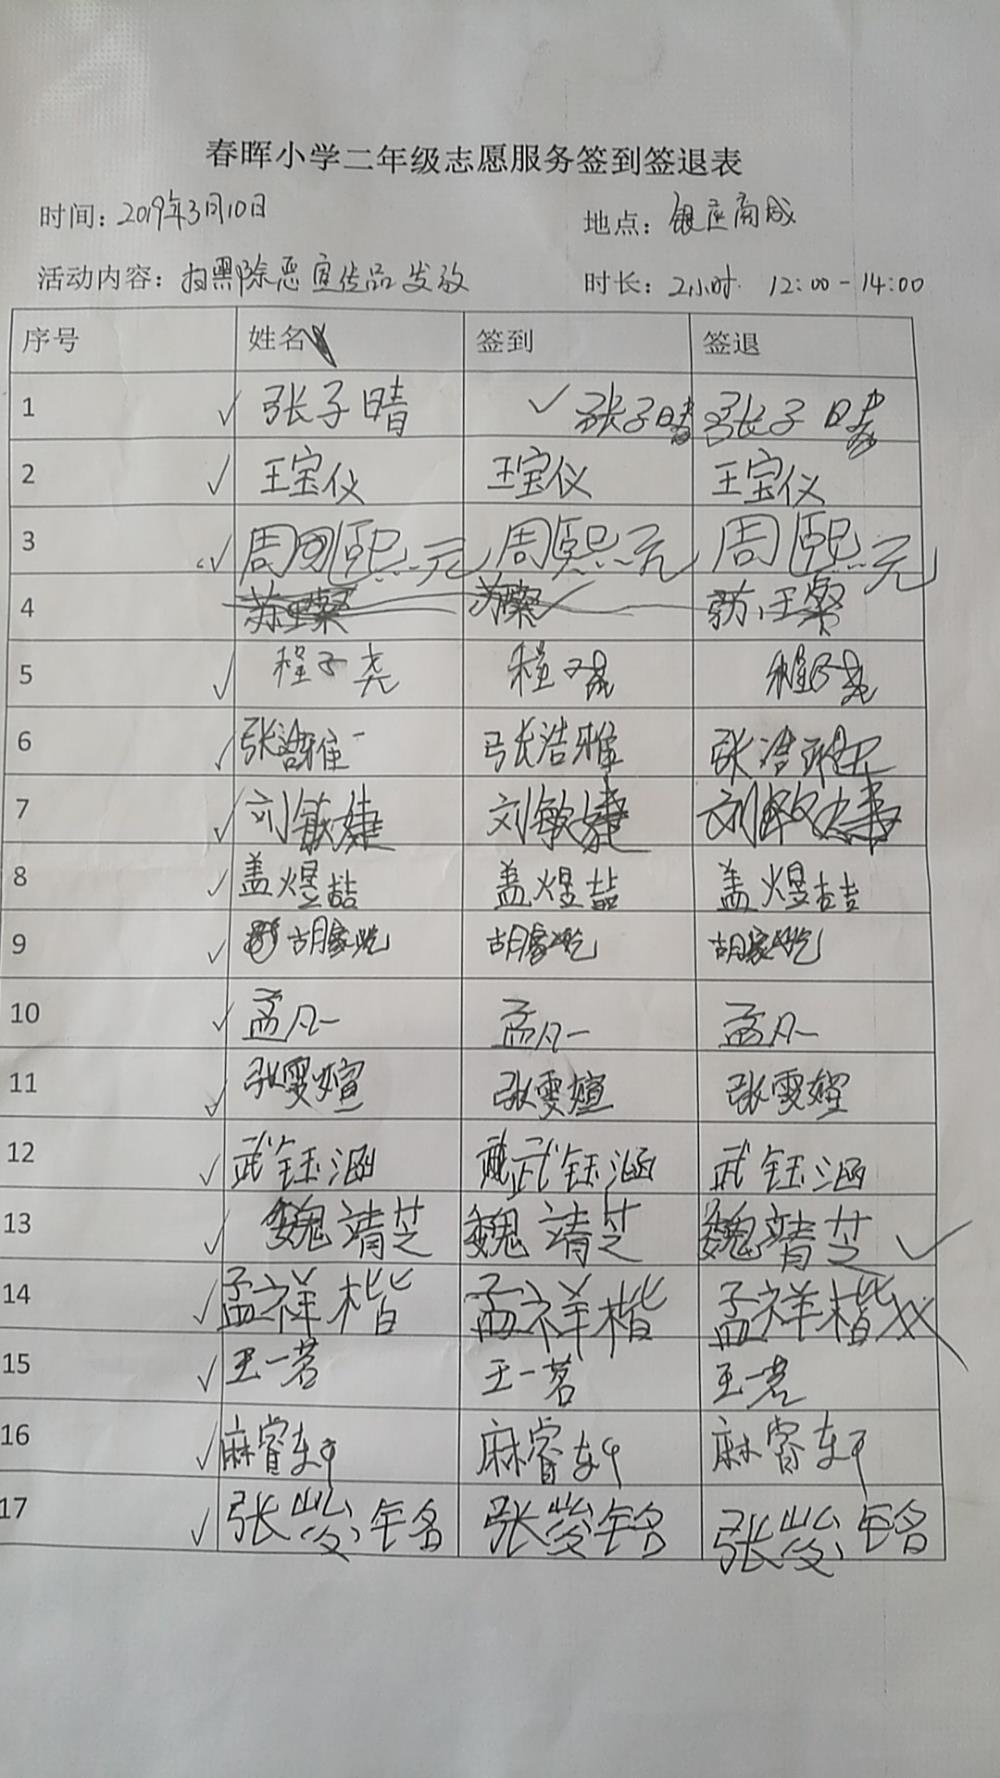 春晖小学二年级志愿服务签到签退表
时间：2019年3月10日 地点：银座商城
活动内容：扫黑除恶宣传品发放 时长：2小时 12:00-14:00
序号 姓名 签到 签退
1 ✓ 张子晴 ✓ 张子晴 张子晴
2 ✓ 王宝仪 王宝仪 王宝仪
3 ✓ 周熙元 周熙元 周熙元
4 苏 苏璨
5 ✓ 程子尧 程子尧 程子尧
6 ✓ 张浩雅 张浩雅 张浩雅
7 ✓ 刘敏婕 刘敏婕 刘敏婕
8 ✓ 盖煜喆 盖煜喆 盖煜喆
9 ✓ 胡家 胡家 胡家
10 ✓ 孟凡一 孟凡一 孟凡一
11 ✓ 张雯媗 张雯媗 张雯媗
12 ✓ 武钰涵 武钰涵 武钰涵
13 ✓ 魏靖芝 魏靖芝 魏靖芝 ✓
14 ✓ 孟祥楷 孟祥楷 孟祥楷
15 ✓ 王一茗 王一茗 王一茗
16 ✓ 麻睿轩 麻睿轩 麻睿轩
17 ✓ 张 铭 张 铭 张 铭